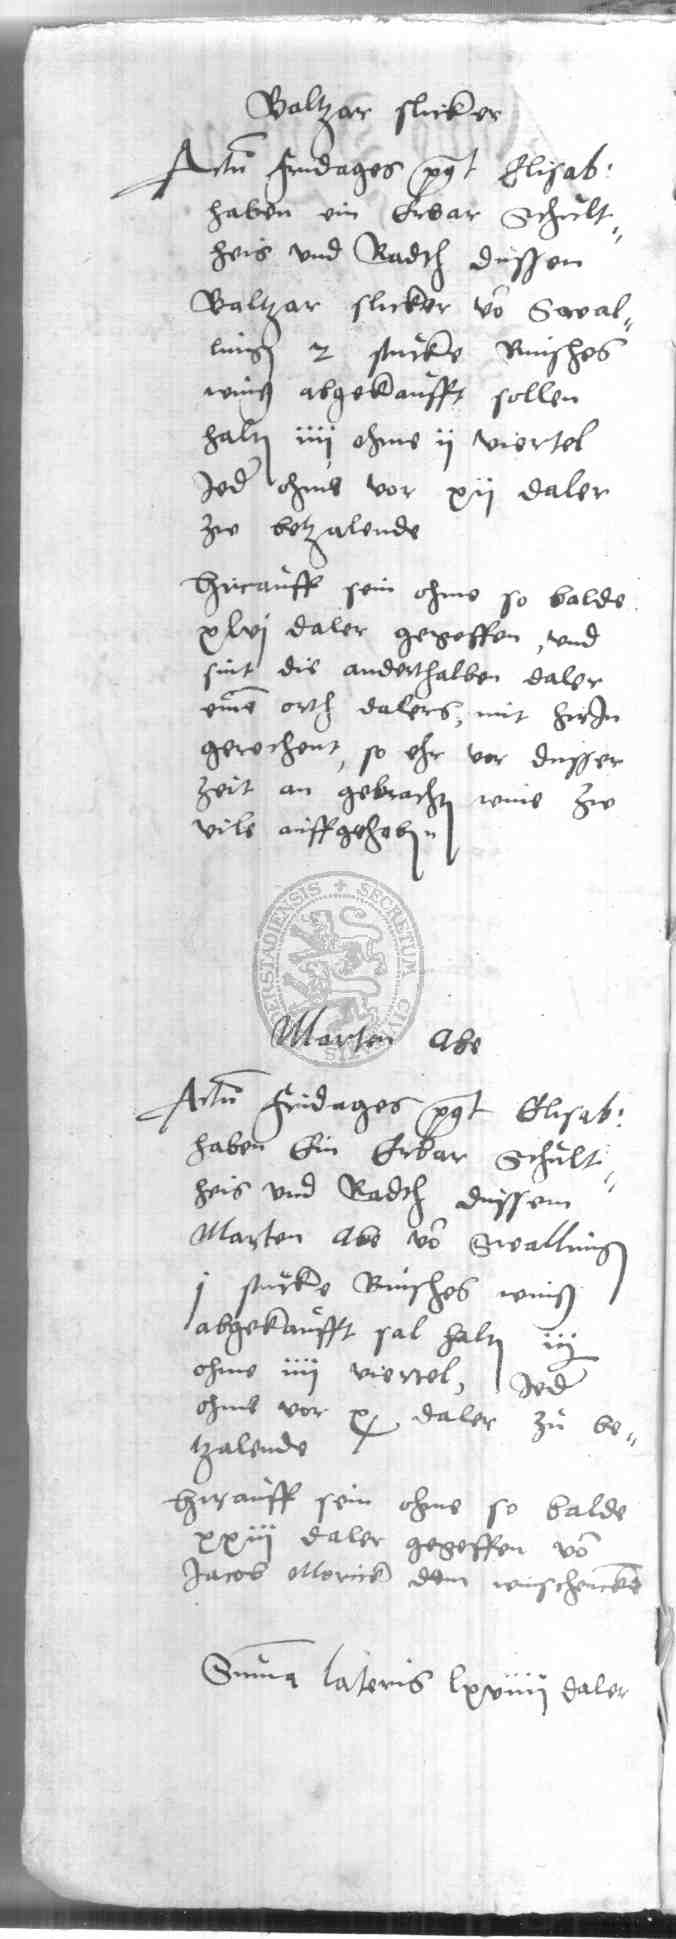 Baltzar slicker
Actu Fridages post Elisab:
haben ein Erbar Schult„
heis und Radth dussen
Baltzar slicker vo Swal„
lung 2 stucke Rinsches
wins abgekaufft sollen
halten iiij ohme ij viertel
Jed ohme vor xij daler
zw betzalende
Hirauff sein ohme so balde
xlvj daler gegeffen, und
sint die anderthalben daler
eine orth dalers, mit hirJn
gerechent, so ehr vor dusser
zeit an gebrachten wine zw
vile auffgehoben
SECRETUM CIVI HALBERSTADIENSIS
Marten Abe
Actu Fridages post Elisab:
haben Ein Erbar Schult„
heis und Radth dussem
Marten Abe vo Swallung
j stucke Rinsches wins
abgekaufft sal halten iij
ohme iiij viertel, Jed
ohme vor x daler zu be„
tzalende
Hirauff sein ohme so balde
xxiij daler gegeffen vo
Jacob dem winschencken
Suma lateris lxviiij daler